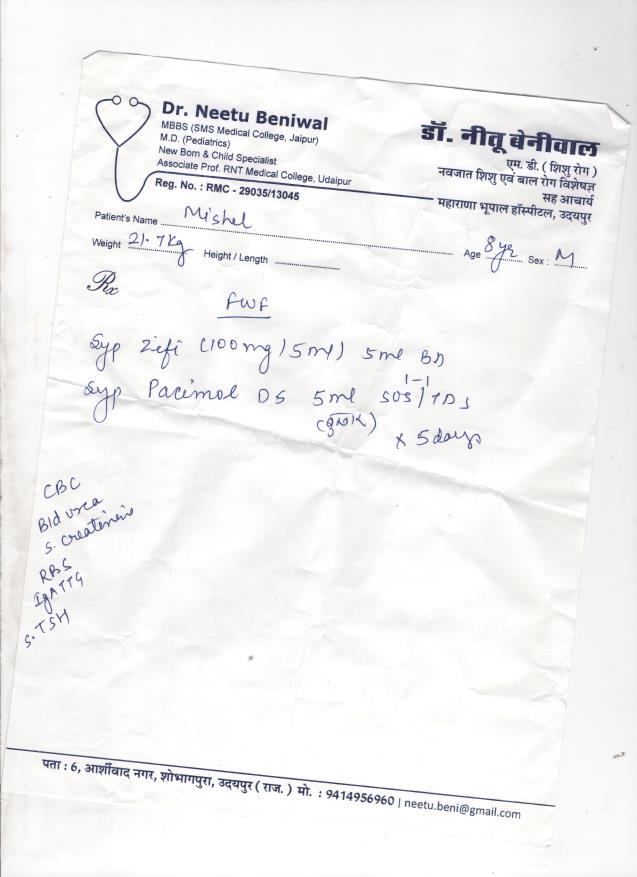 Dr. Neetu Beniwal
MBBS (SMS Medical College, Jaipur)
M.D. (Pediatrics)
New Born & Child Specialist
Associate Prof. RNT Medical College, Udaipur
Reg. No. : RMC - 29035/13045
डॉ. नीतू बेनीवाल
एम. डी. ( शिशु रोग )
नवजात शिशु एवं बाल रोग विशेषज्ञ
सह आचार्य
महाराणा भूपाल हॉस्पीटल, उदयपुर
Patient's Name Mishel
Age 8 yr Sex : M
Weight 21.7 Kg Height / Length
Rx
FWF
Syp Zifi (100mg/5ml) 5ml BD
1-1
Syp Pacimol DS 5ml SOS/TDS
(बुखार) x 5 days
CBC
Bld urea
S. creatinine
RBS
IgATTG
S. TSH
पता : 6, आर्शीवाद नगर, शोभागपुरा, उदयपुर ( राज. ) मो. : 9414956960 | neetu.beni@gmail.com